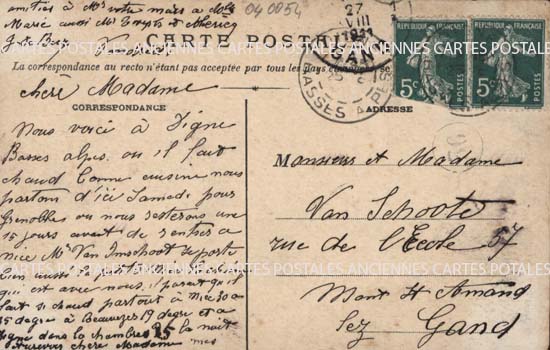 amitiés à Mr votre mari à Mlle
Marie aussi Mr Th
040054
CARTE POSTALE
La correspondance au recto n'étant pas acceptée par tous les pays
27
VIII
1911
BASSES ALPES
REPUBLIQUE FRANÇAISE
5c
REPUBLIQUE FRANÇAISE
5c
CARTES POSTALES ANCIENNES CARTES POSTALES ANCIENNES CARTES POSTALES
chère Madame
CORRESPONDANCE
Nous voici à Digne
Basses alpes ou il fait
chaud bonne cuisine nous
partons d'ici Samedi pour
Grenoble ou nous resterons une
15 jours avant de rentrer a
nice Mr Van Imschoot se porte
bien
qui est avec nous, il parait qu'il
fait si chaud partout à Nice 30 a
35 degre à Beauvezer 19 degre et a
Digne dans la chambre 25 la nuit
Aurevoir chère Madame mes
ADRESSE
Monsieur et Madame
Van Schoote
rue de l'Ecole 57
Mont St Amand
lez Gand
CARTES POSTALES ANCIENNES CARTES POSTALES ANCIENNES CARTES POSTALES